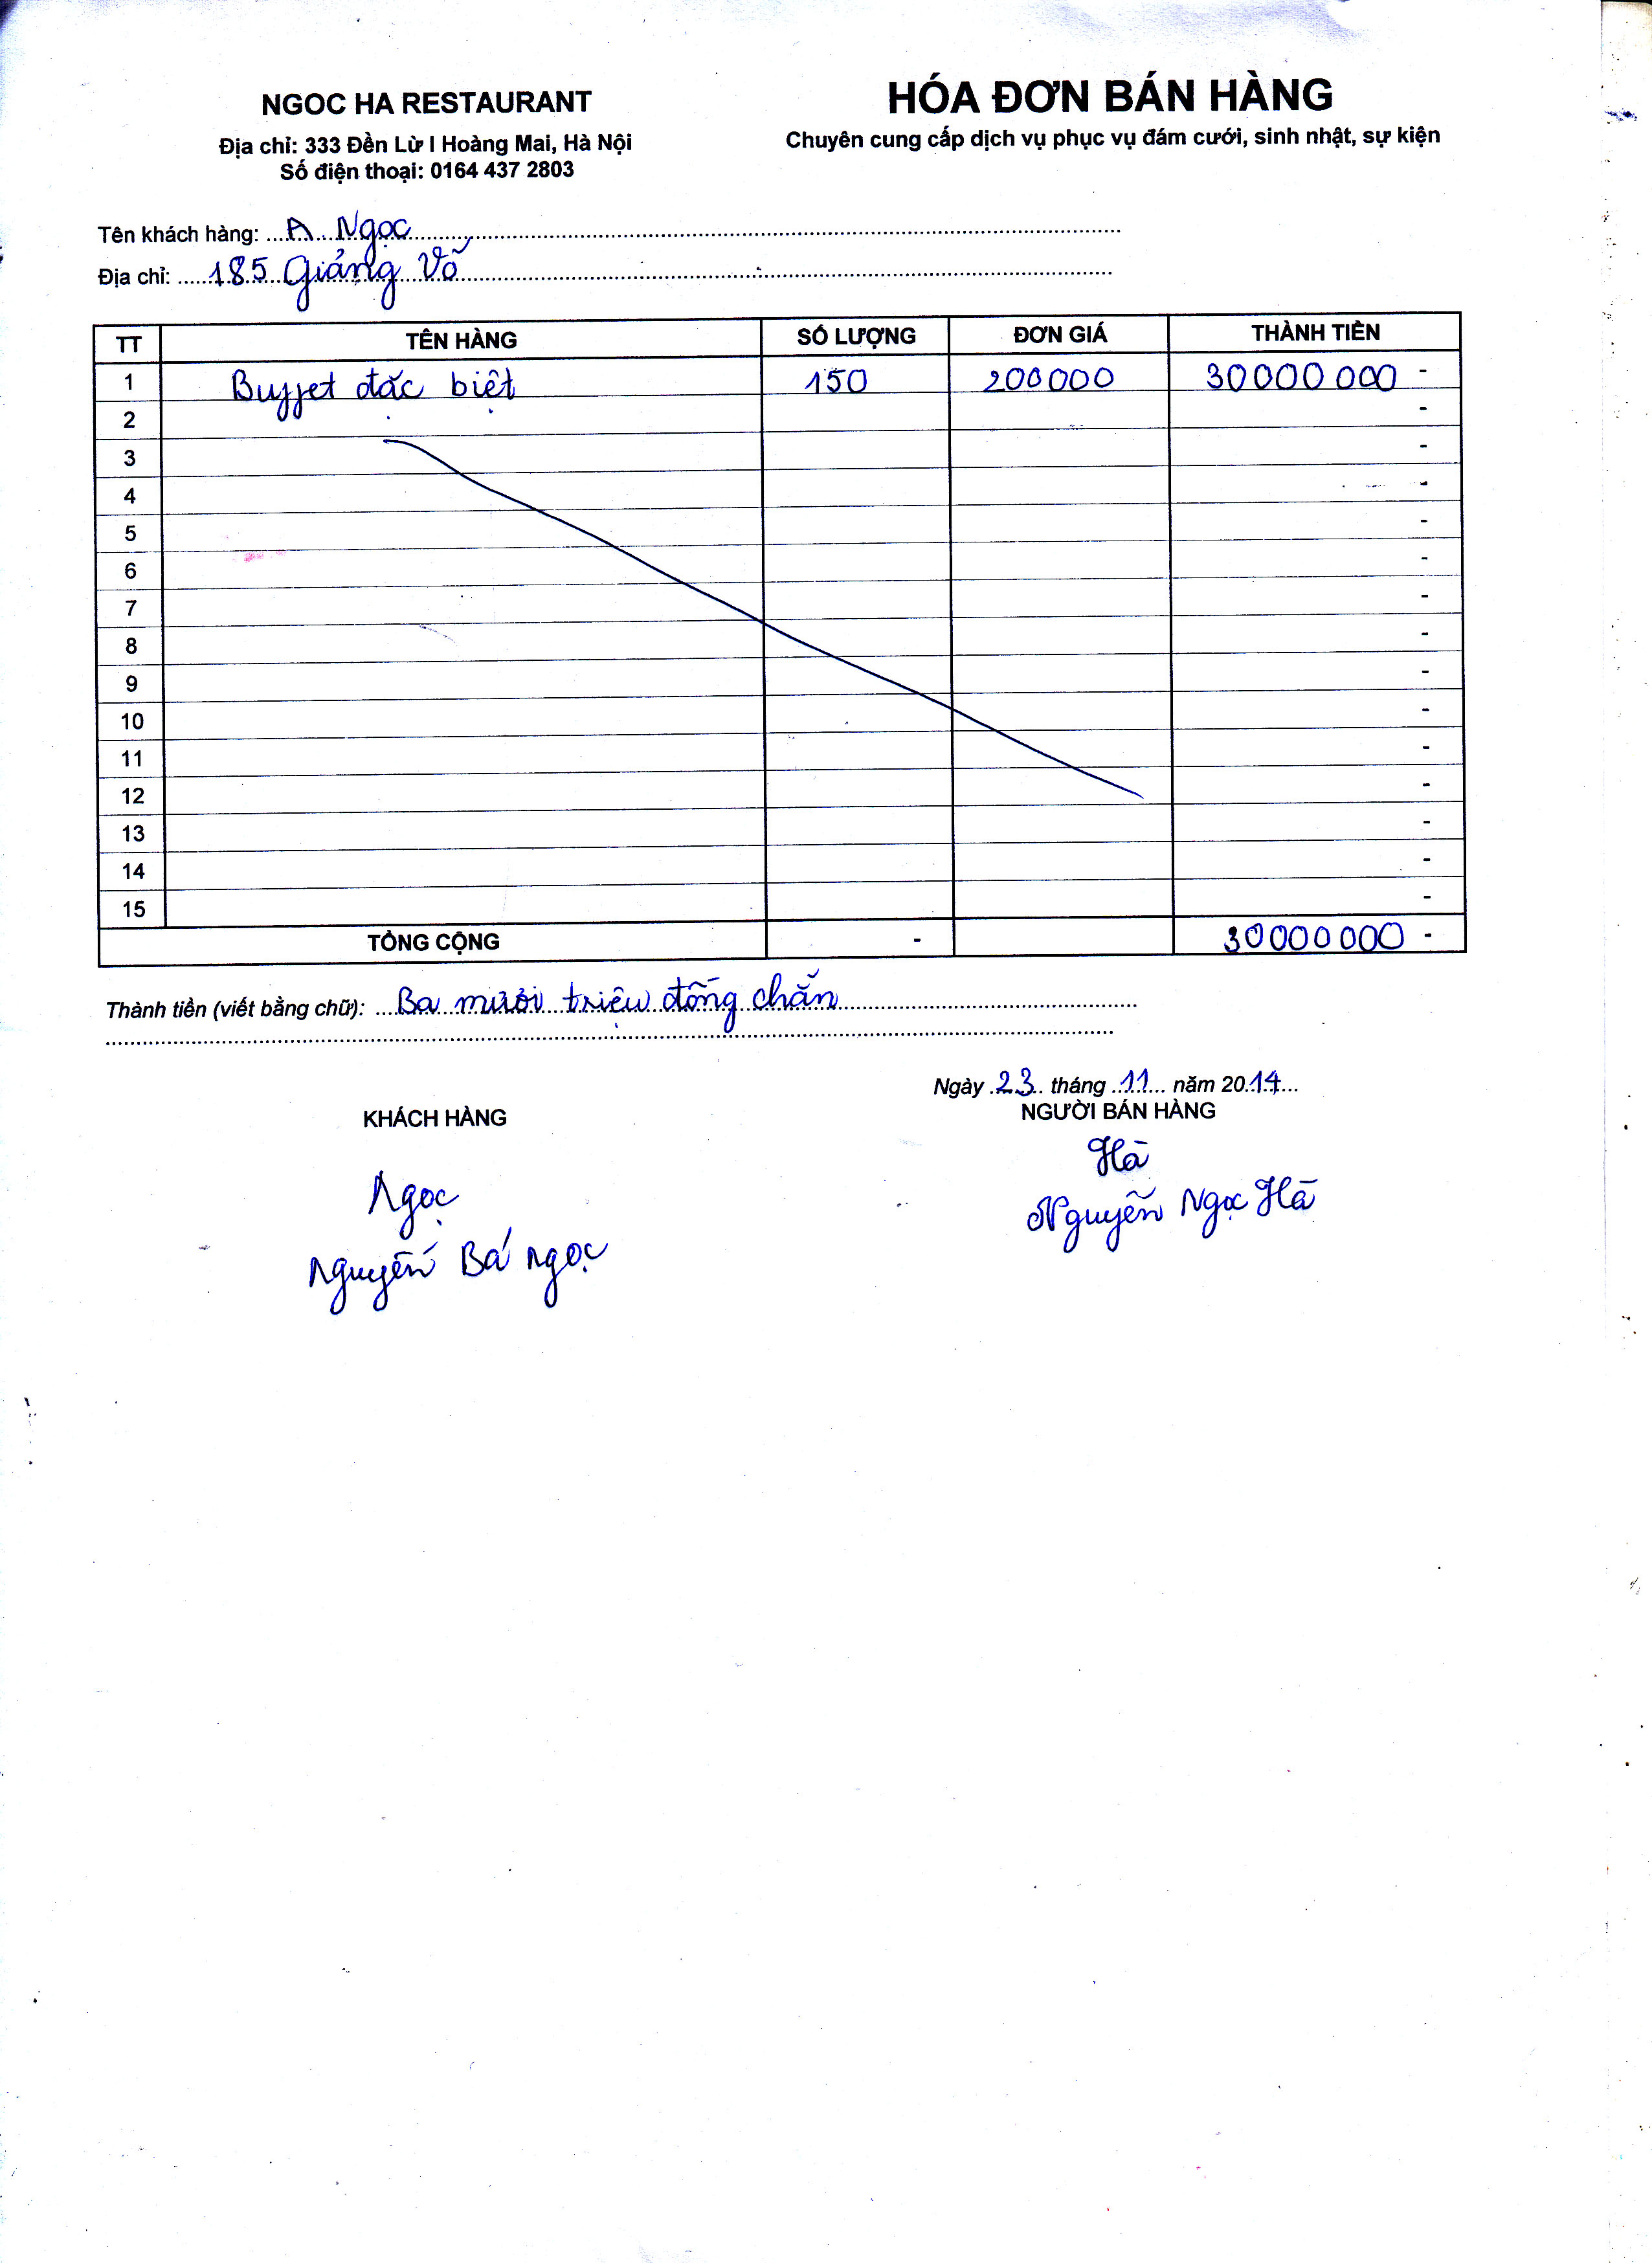 NGOC HA RESTAURANT
Địa chỉ: 333 Đền Lừ I Hoàng Mai, Hà Nội
Số điện thoại: 0164 437 2803
HÓA ĐƠN BÁN HÀNG
Chuyên cung cấp dịch vụ phục vụ đám cưới, sinh nhật, sự kiện
Tên khách hàng: A. Ngọc
Địa chỉ: 185 Giảng Võ
TT TÊN HÀNG SỐ LƯỢNG ĐƠN GIÁ THÀNH TIỀN
1 Buffet đặc biệt 150 200000 30000000 -
2 -
3 -
4 -
5 -
6 -
7 -
8 -
9 -
10 -
11 -
12 -
13 -
14 -
15 -
TỔNG CỘNG - 30000000 -
Thành tiền (viết bằng chữ): Ba mươi triệu đồng chẵn
Ngày 23 tháng 11 năm 2014
KHÁCH HÀNG
Ngọc
Nguyễn Bá Ngọc
NGƯỜI BÁN HÀNG
Hà
Nguyễn Ngọc Hà